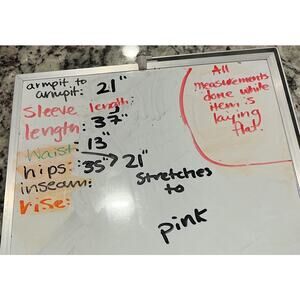 armpit to
armpit: 21"
Sleeve length:
length: 37"
Waist: 13"
hips: 35" > 21"
inseam: Stretches
rise: to
pink
All
measurements
done while
item is
laying
flat.